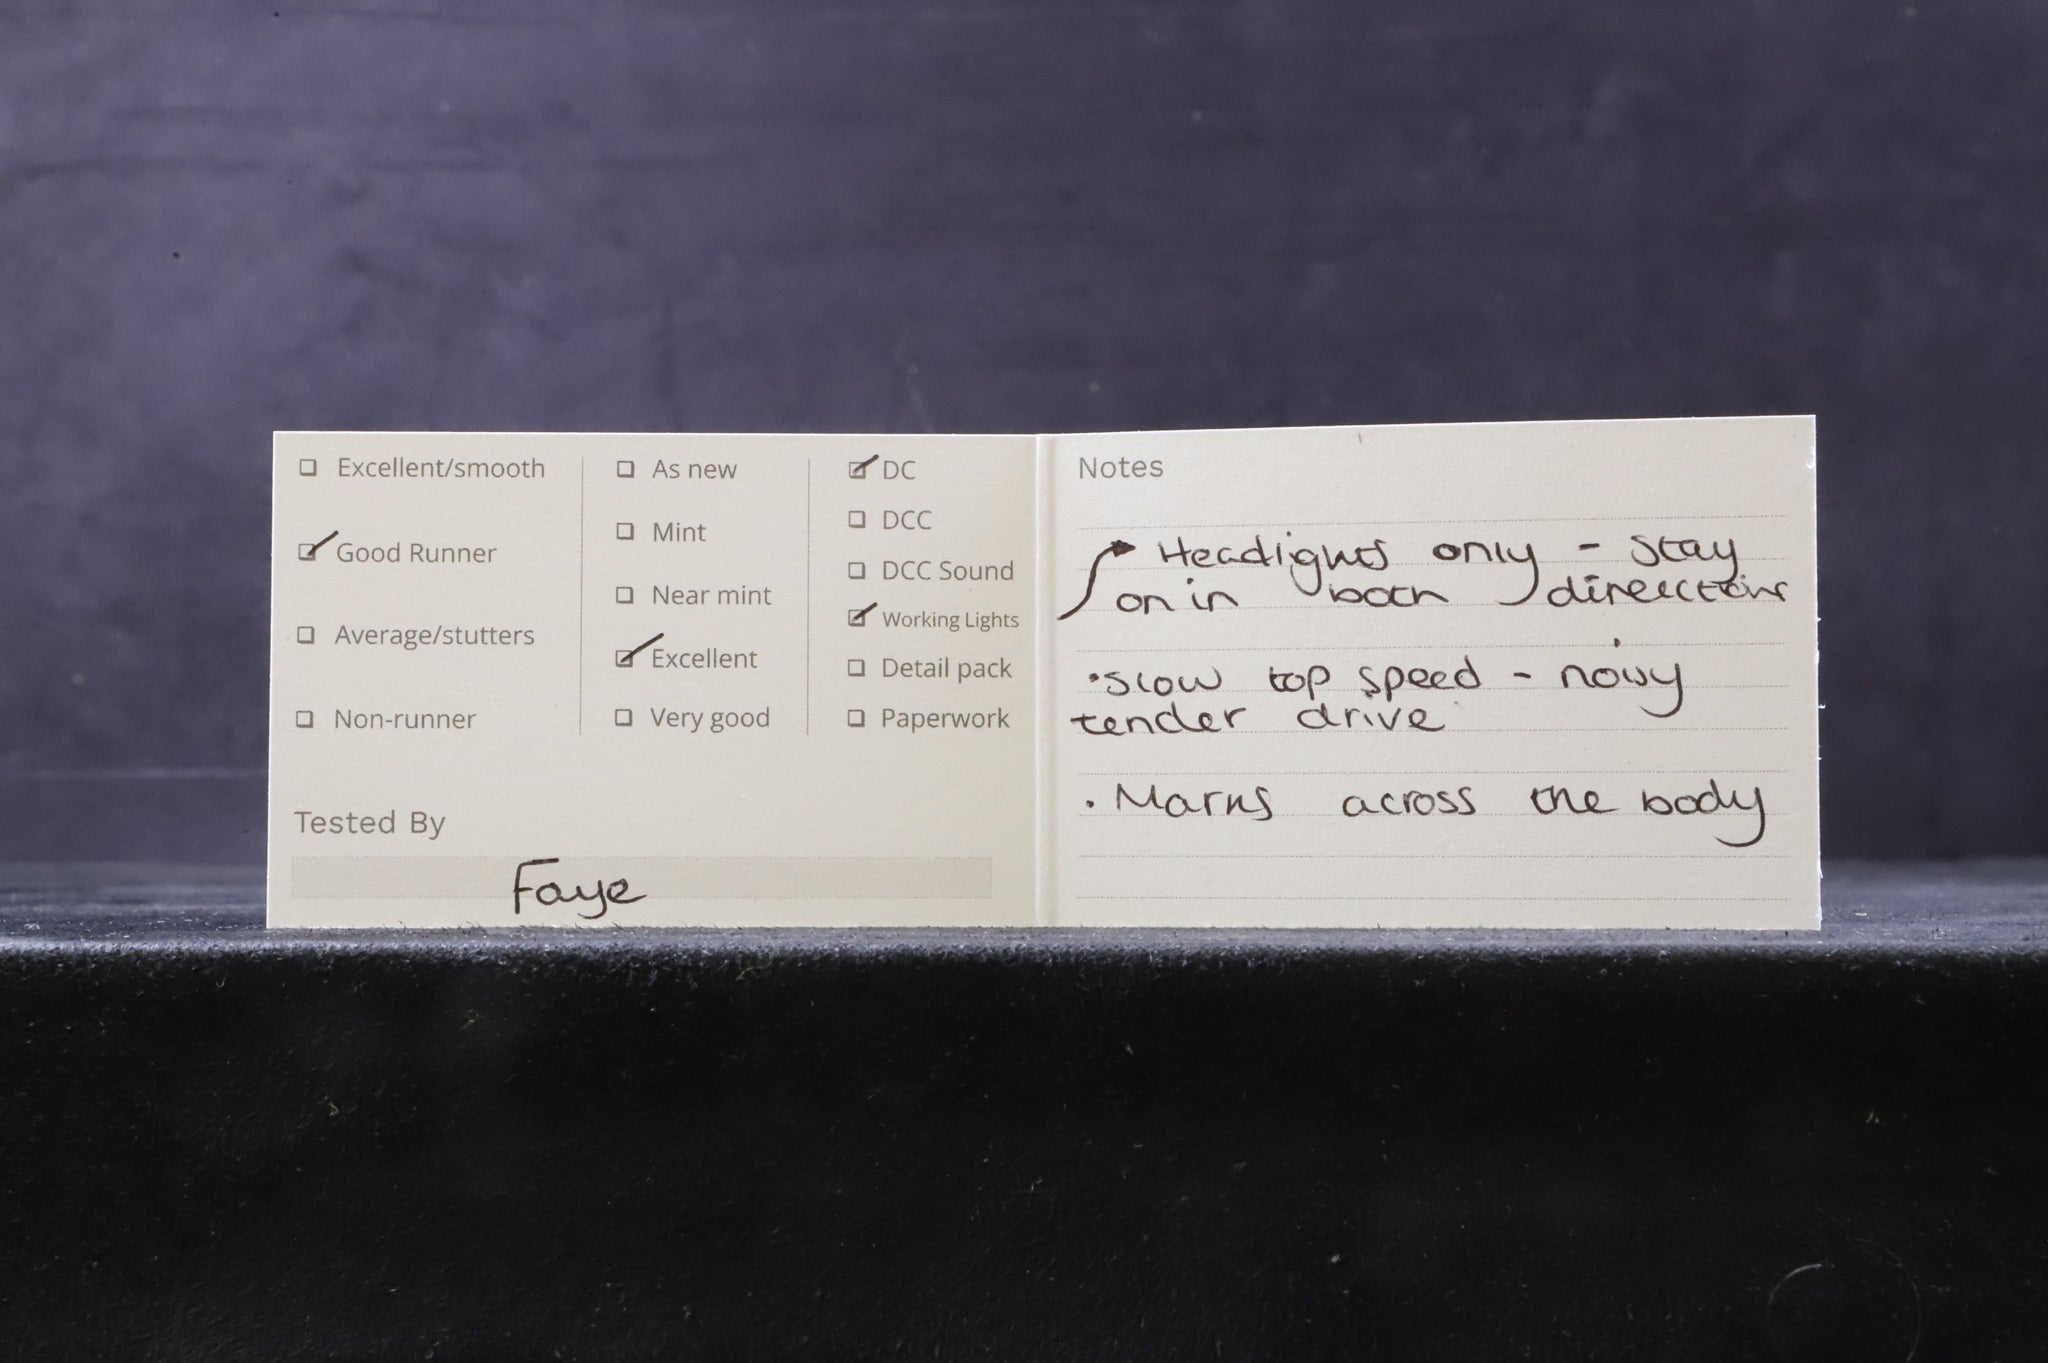 Excellent/smooth
Good Runner
Average/stutters
Non-runner
As new
Mint
Near mint
Excellent
Very good
DC
DCC
DCC Sound
Working Lights
Detail pack
Paperwork
Tested By
Faye
Notes
Headlights only - stay
on in both directions
• slow top speed - noisy
tender drive
• Marks across the body